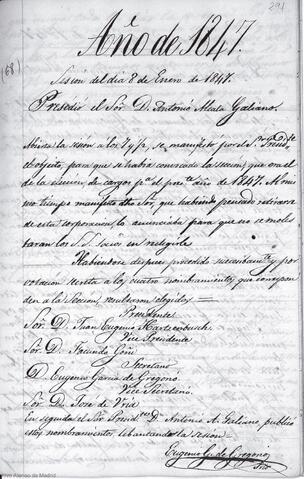 291
Año de 1847.
(68)
Sesión del día 8 de Enero de 1847.
Presidió el Sor. D. Antonio Alcala Galiano.
Abierta la sesión a las 7 y ½, se manifestó por el Sr. Presidte
el objeto, para que se había convocado la sección, que era el
de la elección de cargos pa. el preste. año de 1847. Al mis
mo tiempo manifestó dho Sor, que habiendo pensado retirarse
de esta corporación lo anunciaba para que no se moles
taran los S.S. Socios en reelegirle
Habiéndose despues procedido sucesibamte. y por
votación secreta a los cuatro nombramientos que correspon
den a la Sección, resultaron elegidos =
Presidente
Sor. D. Juan Eugenio Hartzenbusch
Vice Presidente
Sor. D. Facundo Goñi
Secretario
D. Eugenio Garcia de Gregorio
Vice Secretario.
Sor. D. Jose de Uria
En seguida el Sor. Presidte. D. Antonio A. Galiano, publicó
estos nombramientos, lebantando la sesión =
Eugenio G. de Gregorio
Srio
Ateneo de Madrid